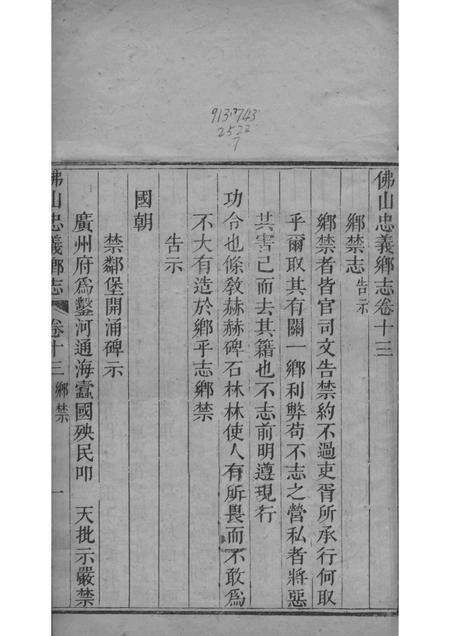 913.743
2522
7
佛山忠義鄉志卷十三
鄉禁志 告示
鄉禁者皆官司文告禁約不過吏胥所承行何取
乎爾取其有關一鄉利弊苟不志之營私者將惡
其害己而去其籍也不志前明遵現行
功令也條教赫赫碑石林林使人有所畏而不敢為
不大有造於鄉乎志鄉禁
告示
國朝
禁鄰堡開涌碑示
廣州府為鑿河通海蠹國殃民叩 天批示嚴禁
佛山忠義鄉志 卷十三 鄉禁 一